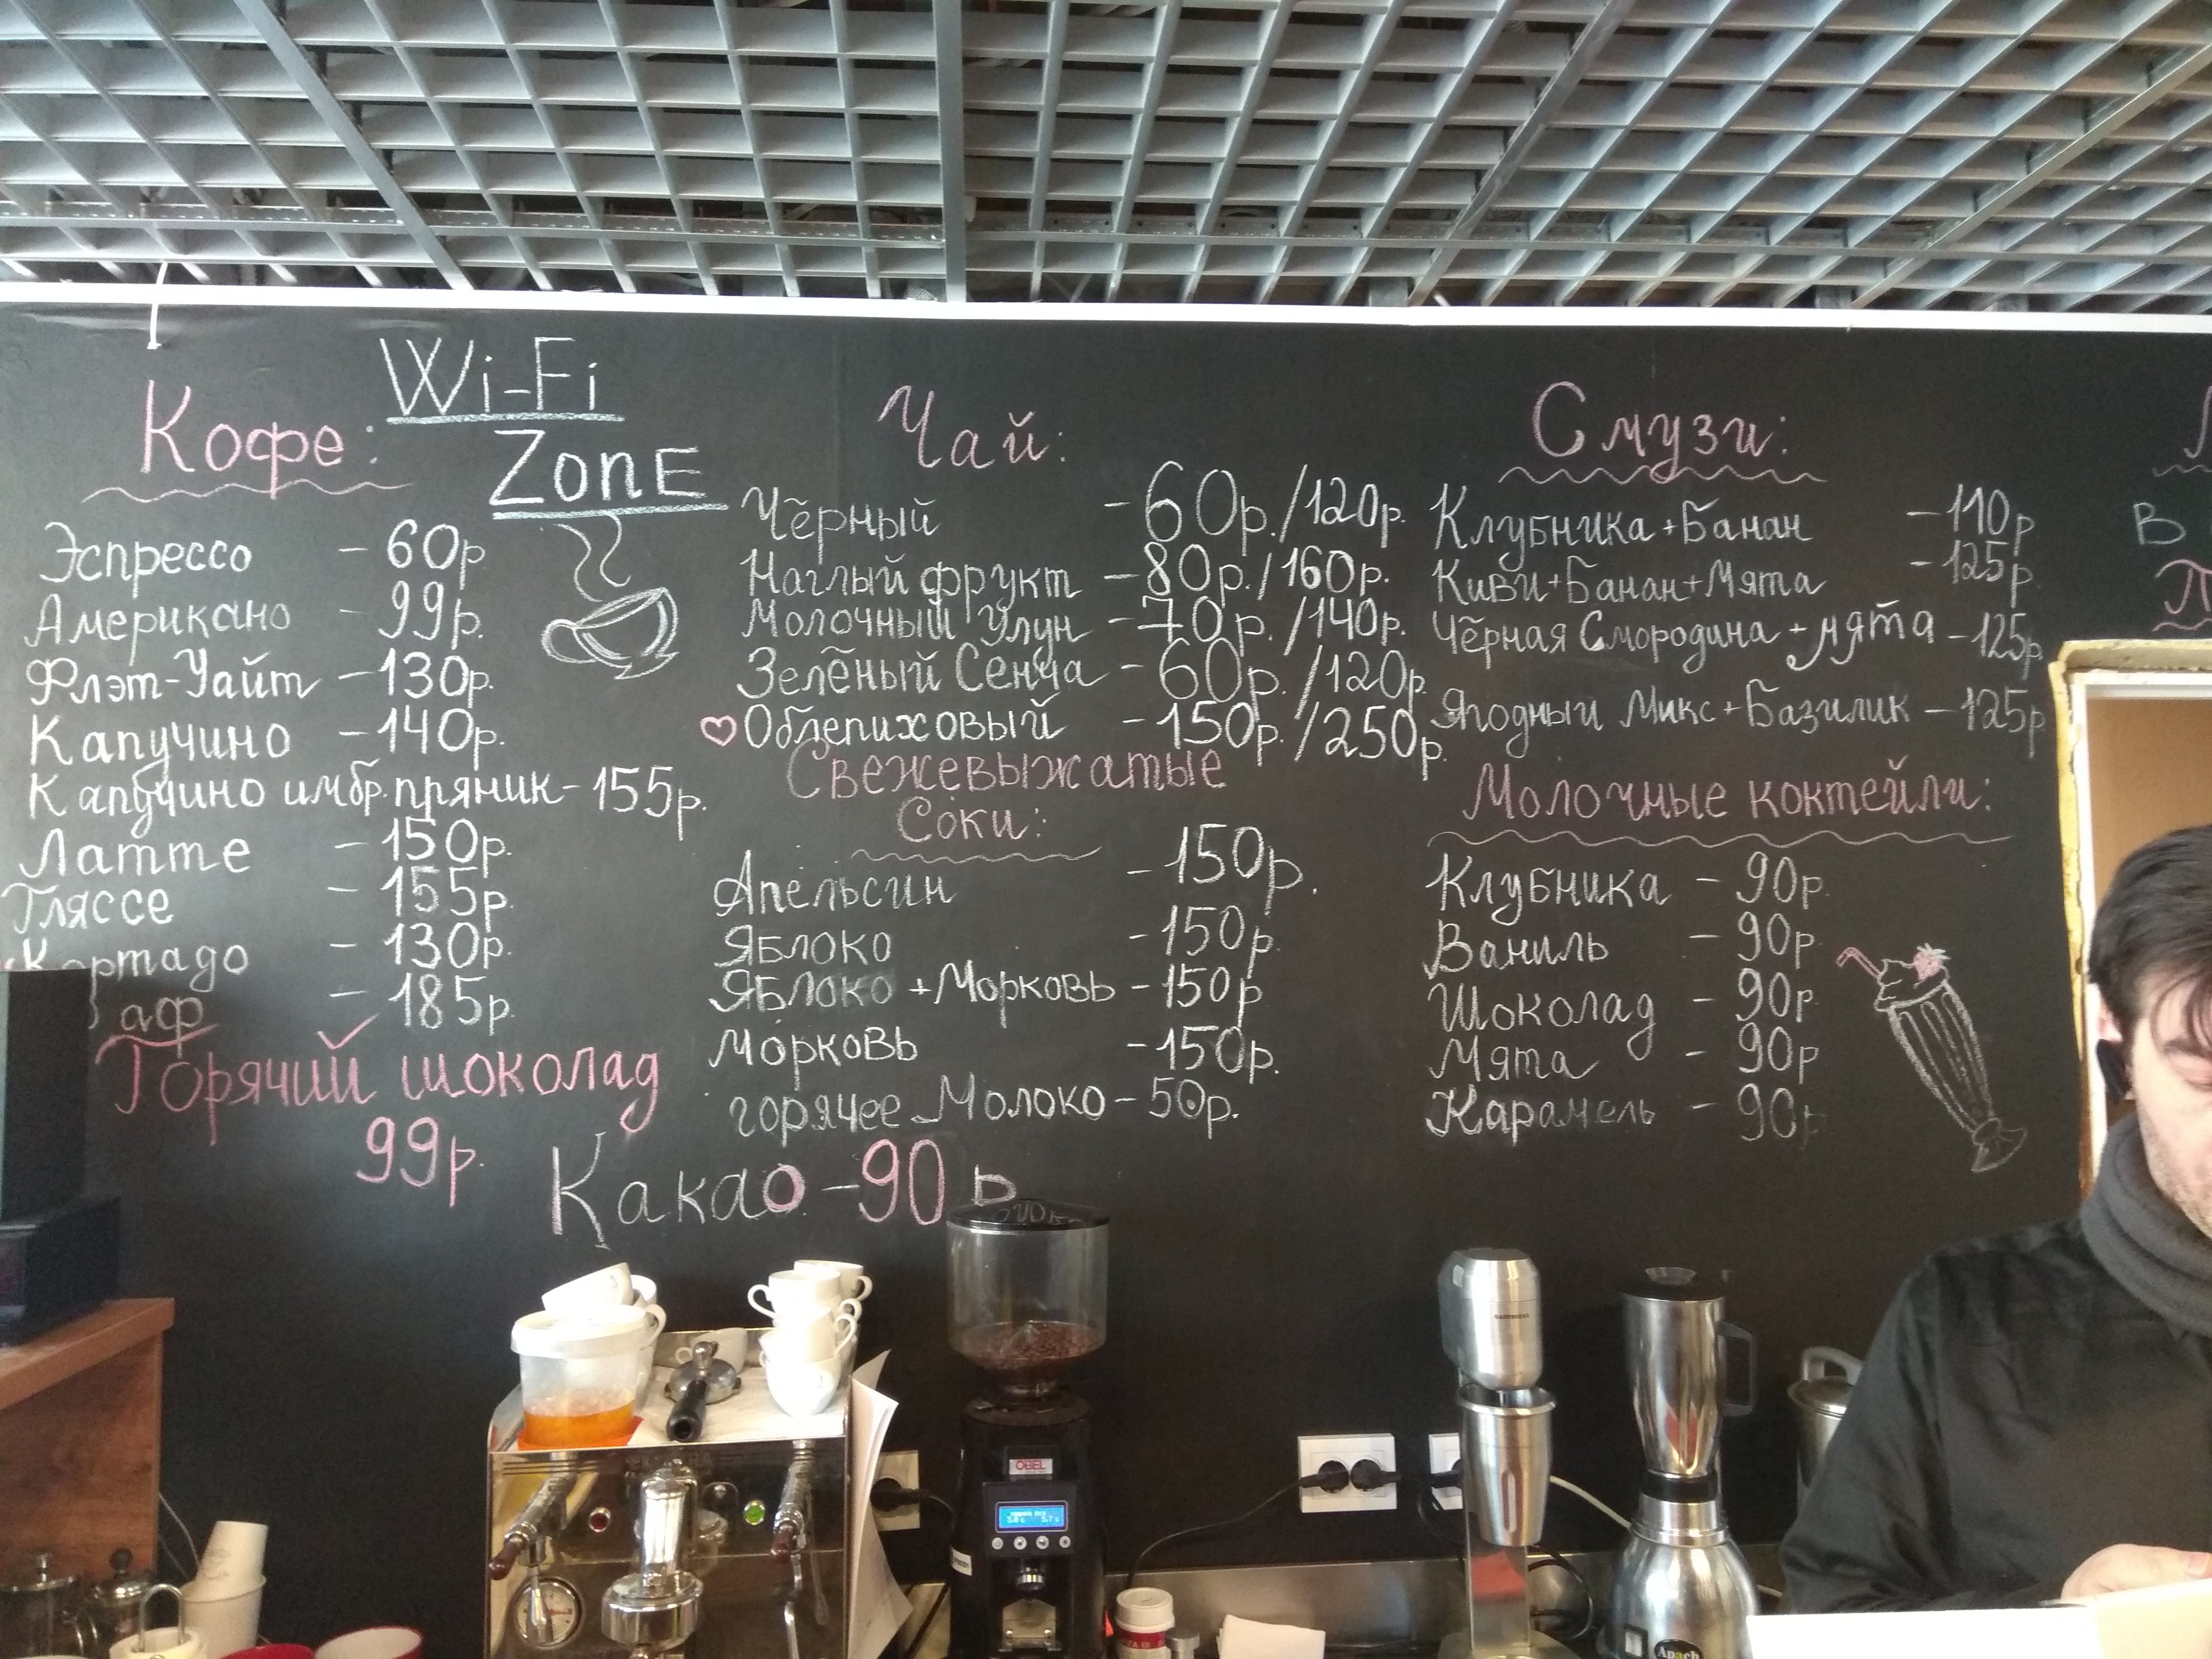 Wi-Fi
Zone
Кофе:
Эспрессо - 60р
Американо - 99р.
Флэт-Уайт - 130р.
Капучино - 140р.
Капучино имбр. пряник - 155р.
Латте - 150р.
Гляссе - 155р.
Кортадо - 130р.
аф - 185р.
Горячий шоколад
99р.
Какао - 90 р
Чай:
Чёрный - 60р./120р.
Наглый фрукт - 80р./160р.
Молочный Улун - 70р./140р.
Зелёный Сенча - 60р./120р.
Облепиховый - 150р./250р.
Свежевыжатые
Соки:
Апельсин - 150р.
Яблоко - 150р.
Яблоко + Морковь - 150р
Морковь - 150р.
горячее Молоко - 50р.
Смузи:
Клубника + Банан - 110р
Киви + Банан + Мята - 125р.
Чёрная Смородина + мята - 125р.
Ягодный Микс + Базилик - 125р
Молочные коктейли:
Клубника - 90р.
Ваниль - 90р
Шоколад - 90р
Мята - 90р
Карамель - 90р
В
OBEL
Apach